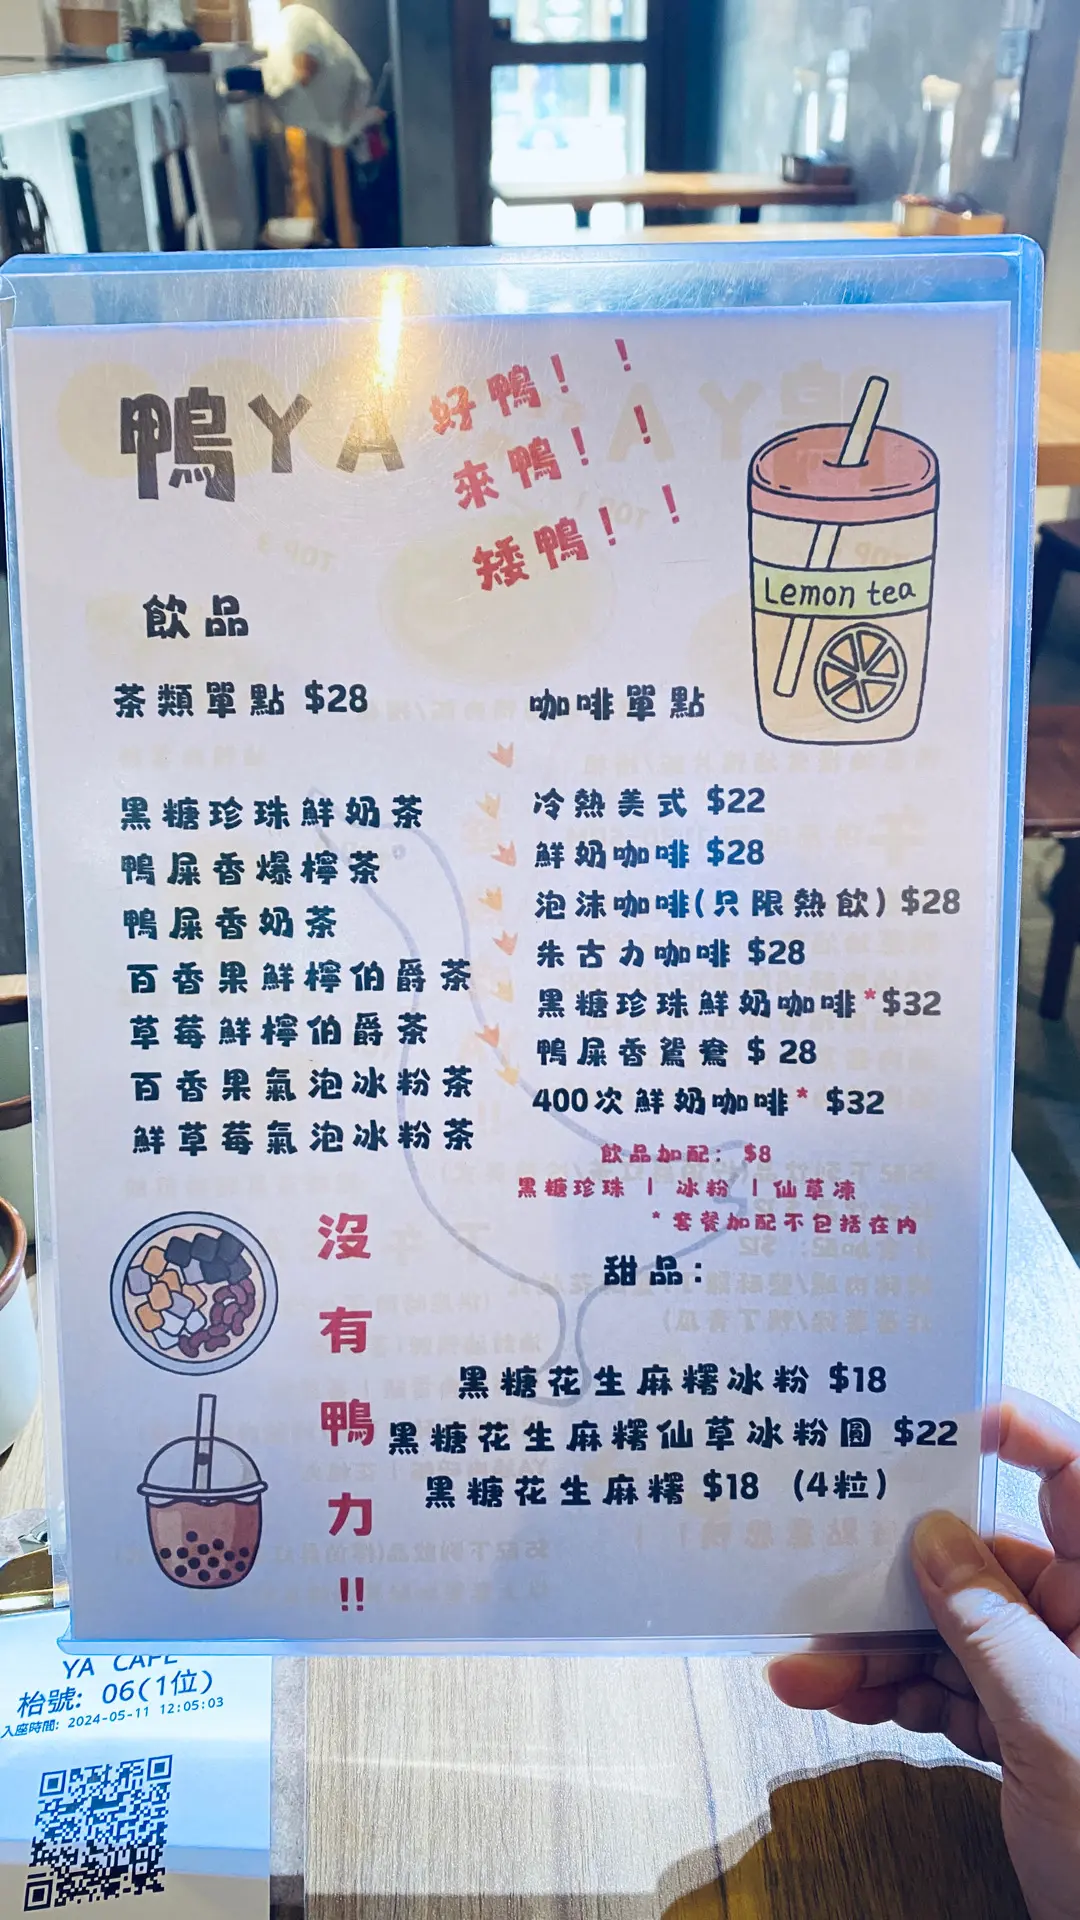 鴨YA
好鴨！！
來鴨！！
矮鴨！！
Lemon tea
飲品
茶類單點 $28
黑糖珍珠鮮奶茶
鴨屎香爆檸茶
鴨屎香奶茶
百香果鮮檸伯爵茶
草莓鮮檸伯爵茶
百香果氣泡冰粉茶
鮮草莓氣泡冰粉茶
咖啡單點
冷熱美式 $22
鮮奶咖啡 $28
泡沫咖啡(只限熱飲) $28
朱古力咖啡 $28
黑糖珍珠鮮奶咖啡*$32
鴨屎香鴛鴦 $ 28
400次鮮奶咖啡* $32
飲品加配: $8
黑糖珍珠 | 冰粉 | 仙草凍
*套餐加配不包括在內
沒有鴨力!!
甜品:
黑糖花生麻糬冰粉 $18
黑糖花生麻糬仙草冰粉圓 $22
黑糖花生麻糬 $18 (4粒)
YA CAFE
枱號: 06(1位)
入座時間: 2024-05-11 12:05:03